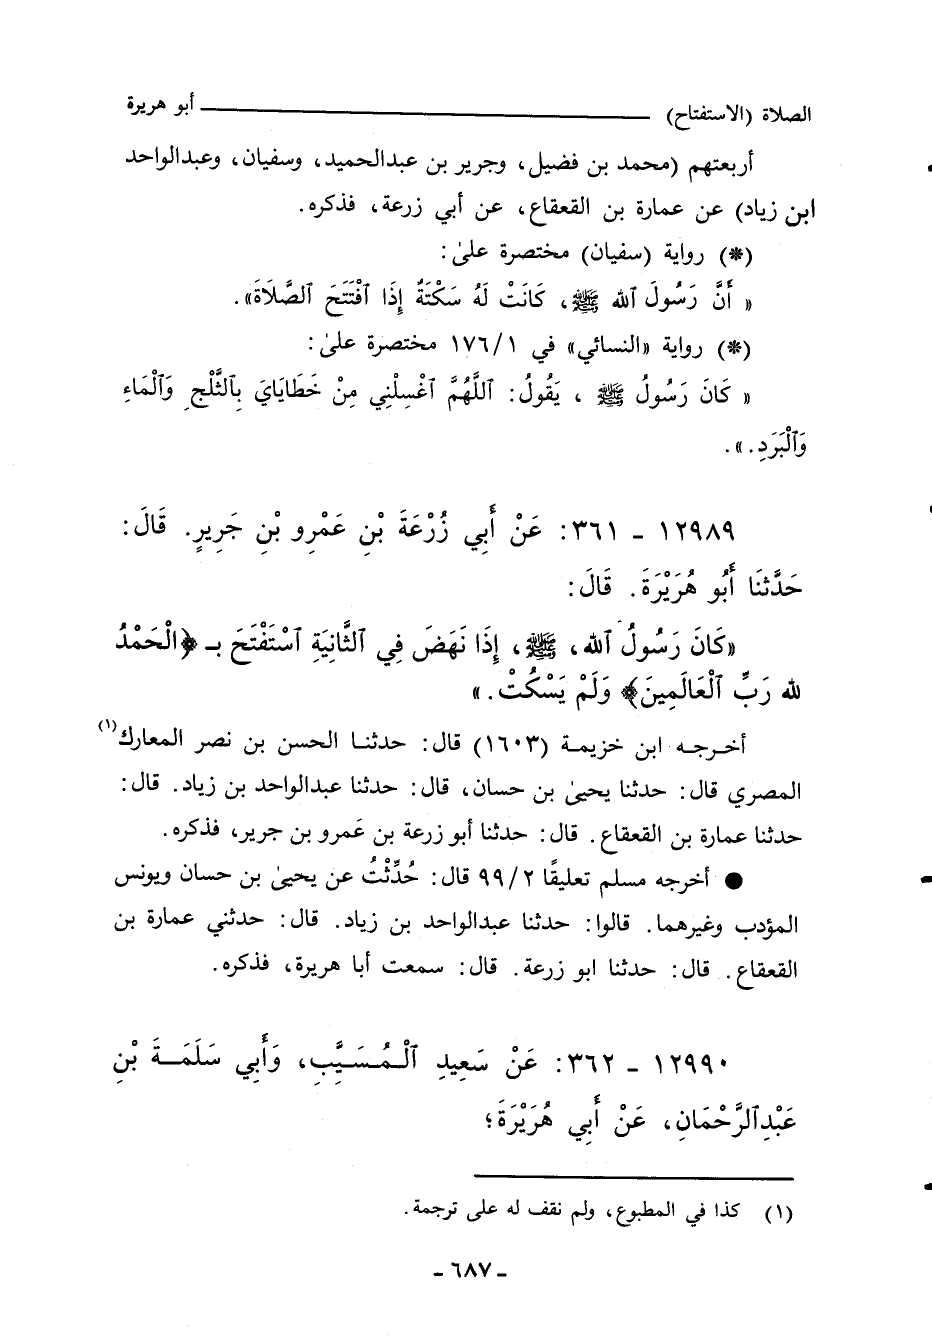 الصلاة (الاستفتاح) ـــــــــــــــــــــ أبو هريرة
أربعتهم (محمد بن فضيل، وجرير بن عبدالحميد، وسفيان، وعبدالواحد
ابن زياد) عن عمارة بن القعقاع، عن أبي زرعة، فذكره.
(*) رواية (سفيان) مختصرة علىٰ:
« أَنَّ رَسُولَ ٱلله ﷺ، كَانَتْ لَهُ سَكْتَةٌ إِذَا ٱفْتَتَحَ ٱلصَّلَاةَ».
(*) رواية «النسائي» في ١٧٦/١ مختصرة علىٰ:
« كَانَ رَسُولُ ﷺ ، يَقُولُ: ٱللَّهُمَّ ٱغْسِلْنِي مِنْ خَطَايَايَ بِٱلثَّلْجِ وَٱلْمَاءِ
وَٱلْبَرَدِ.».
١٢٩٨٩ - ٣٦١: عَنْ أَبِي زُرْعَةَ بْنِ عَمْرِو بْنِ جَرِيرٍ. قَالَ:
حَدَّثَنَا أَبُو هُرَيْرَةَ. قَالَ:
«كَانَ رَسُولُ ٱلله، ﷺ، إِذَا نَهَضَ فِي ٱلثَّانِيَةِ ٱسْتَفْتَحَ بـ ﴿الْحَمْدُ
لله رَبِّ ٱلْعَالَمِينَ﴾ وَلَمْ يَسْكُتْ.»
أخرجه ابن خزيمة (١٦٠٣) قال: حدثنا الحسن بن نصر المعارك(١)
المصري قال: حدثنا يحيىٰ بن حسان، قال: حدثنا عبدالواحد بن زياد. قال:
حدثنا عمارة بن القعقاع. قال: حدثنا أبو زرعة بن عَمرو بن جرير، فذكره.
● أخرجه مسلم تعليقًا ٩٩/٢ قال: حُدِّثْتُ عن يحيىٰ بن حسان ويونس
المؤدب وغيرهما. قالوا: حدثنا عبدالواحد بن زياد. قال: حدثني عمارة بن
القعقاع. قال: حدثنا ابو زرعة. قال: سمعت أبا هريرة، فذكره.
١٢٩٩٠ - ٣٦٢: عَنْ سَعِيدِ ٱلْمُسَيَّبِ، وَأَبِي سَلَمَةَ بْنِ
عَبْدِٱلرَّحْمَانِ، عَنْ أَبِي هُرَيْرَةَ؛
(١) كذا في المطبوع، ولم نقف له على ترجمة.
- ٦٨٧ -